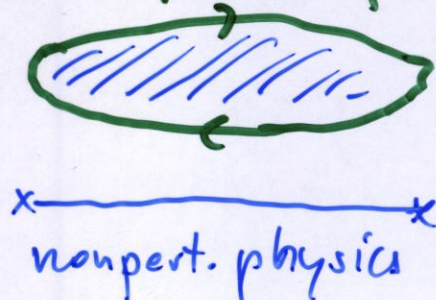 x x
nonpert. physics